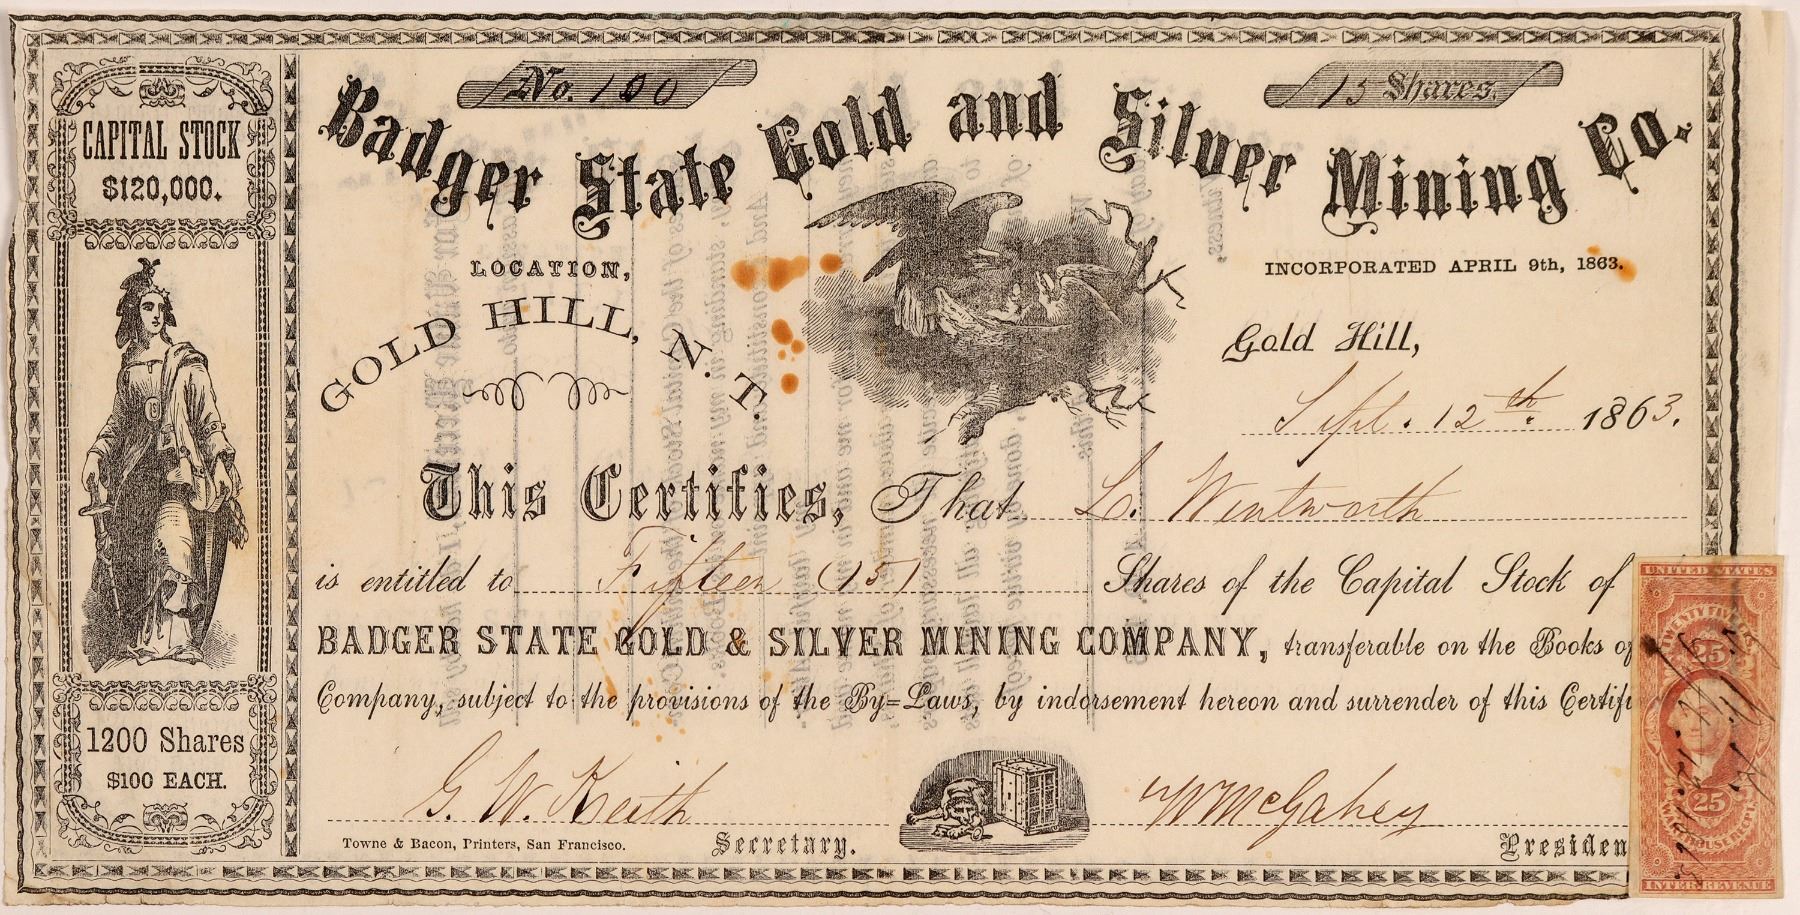 No. 100
15 Shares.
Badger State Gold and Silver Mining Co.
CAPITAL STOCK
$120,000.
LOCATION,
GOLD HILL, N. T.
INCORPORATED APRIL 9th, 1863.
Gold Hill,
Sept. 12th 1863.
This Certifies, That L. Wentworth
is entitled to Fifteen (15) Shares of the Capital Stock of
BADGER STATE GOLD & SILVER MINING COMPANY, transferable on the Books of
Company, subject to the provisions of the By=Laws, by indorsement hereon and surrender of this Certifi
1200 Shares
$100 EACH.
G. W. Keith
Secretary.
W McGahey
Presiden
Towne & Bacon, Printers, San Francisco.
UNITED STATES
TWENTY FIVE
25
25
WAREHOUSE RECEIPT
INTER REVENUE